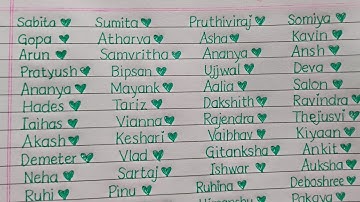 Sabita💚 Sumita💚 Pruthiviraj💚 Somiya💚
Gopa💚 Atharva💚 Asha💚 Kavin💚
Arun💚 Samvritha💚 Ananya💚 Ansh💚
Pratyush💚 Bipsan💚 Ujjwal💚 Deva💚
Ananya💚 Mayank💚 Aalia💚 Salon💚
Hades💚 Tariz💚 Dakshith💚 Ravindra💚
Iaihas💚 Vianna💚 Rajendra💚 Thejusvi💚
Akash💚 Keshari💚 Vaibhav💚 Kiyaan💚
Demeter💚 Vlad💚 Gitanksha💚 Ankit💚
Neha💚 Sartaj💚 Ishwar💚 Auksha💚
Ruhi💚 Pinu💚 Ruhina💚 Debashree💚
Himanshu💚 Pakaya💚